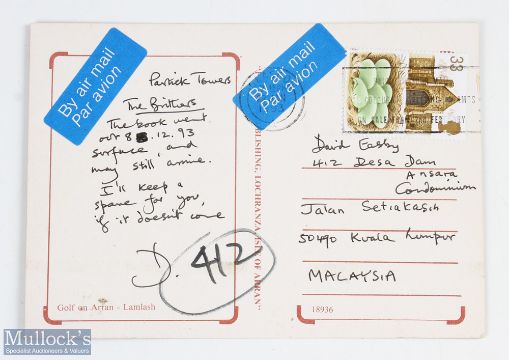 By air mail
Par avion
By air mail
Par avion
Partick Towers
The Brithers
The book went
out 8 . 12 . 93
surface, and
may still arrive.
I'll keep a
spare for you,
if it doesn't come
D.
412
Golf on Arran - Lamlash
PUBLISHING, LOCHRANZA, ISLE OF ARRAN"
33
David Easby
412 Desa Dam
Ansara
Condominium
Jalan Setiakasih
50490 Kuala Lumpur
MALAYSIA
18936
Mullock's
Specialist Auctioneers & Valuers